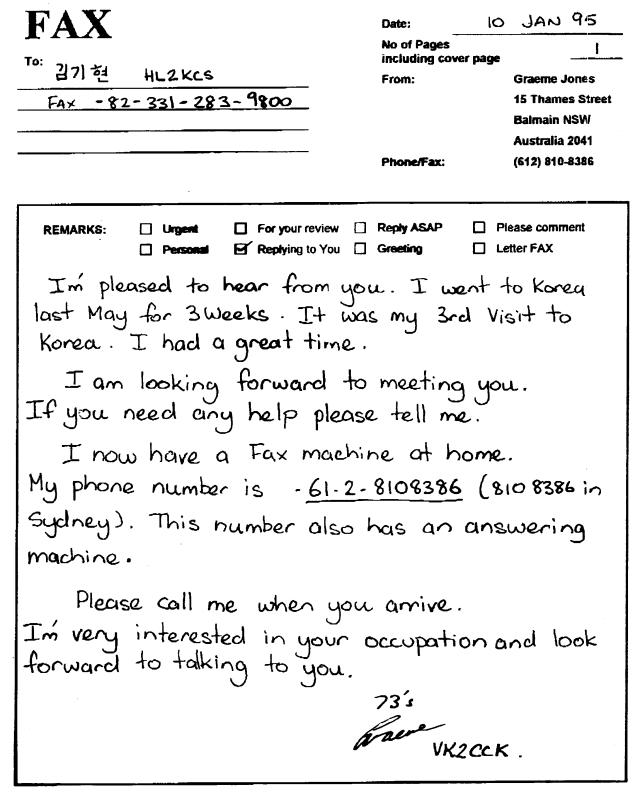 FAX
To: 김기현 HL2KCS
FAX - 82-331-283-9800
Date: 10 JAN 95
No of Pages including cover page 1
From: Graeme Jones
15 Thames Street
Balmain NSW
Australia 2041
Phone/Fax: (612) 810-8386
REMARKS: ☐ Urgent ☐ For your review ☐ Reply ASAP ☐ Please comment
☐ Personal ☑ Replying to You ☐ Greeting ☐ Letter FAX
I'm pleased to hear from you. I went to Korea
last May for 3 weeks. It was my 3rd Visit to
Korea. I had a great time.
I am looking forward to meeting you.
If you need any help please tell me.
I now have a Fax machine at home.
My phone number is -61-2-8108386 (810 8386 in
Sydney). This number also has an answering
machine.
Please call me when you arrive.
I'm very interested in your occupation and look
forward to talking to you.
73's
Graeme
VK2CCK.